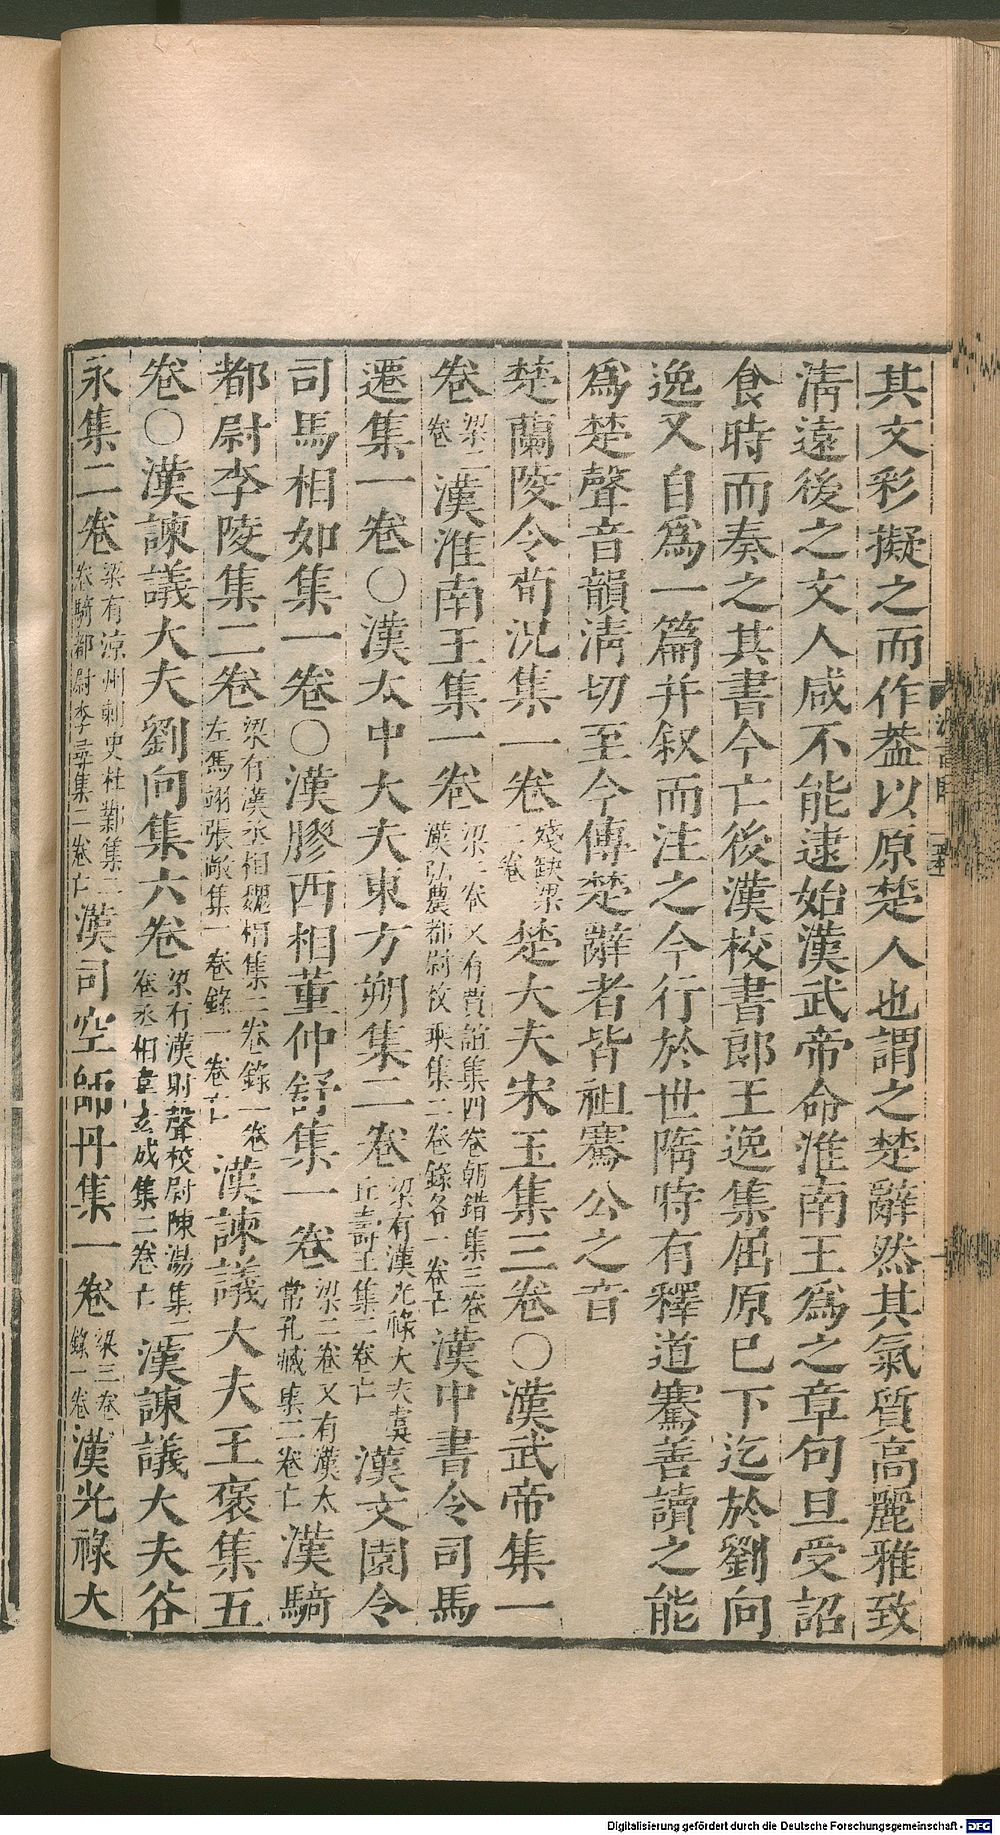 其文彩擬之而作蓋以原楚人也謂之楚辭然其氣質高麗雅致
清遠後之文人咸不能逮始漢武帝命淮南王爲之章句旦受詔
食時而奏之其書今亡後漢校書郎王逸集屈原已下迄於劉向
逸又自爲一篇并叙而注之今行於世隋時有釋道騫善讀之能
爲楚聲音韻清切至今傳楚辭者皆祖騫公之音
楚蘭陵令荀況集一卷殘缺梁二卷楚大夫宋玉集三卷○漢武帝集一
卷梁二卷漢淮南王集一卷梁二卷又有賈誼集四卷朝錯集三卷漢弘農都尉枚乘集二卷錄各一卷亡漢中書令司馬
遷集一卷○漢太中大夫東方朔集二卷梁有漢光祿大夫吾丘壽王集二卷亡漢文園令
司馬相如集一卷○漢膠西相董仲舒集一卷梁二卷又有漢太常孔臧集二卷亡漢騎
都尉李陵集二卷梁有漢丞相魏相集二卷錄一卷左馮翊張敞集一卷錄一卷亡漢諫議大夫王褒集五
卷○漢諫議大夫劉向集六卷梁有漢射聲校尉陳湯集二卷丞相韋玄成集二卷亡漢諫議大夫谷
永集二卷梁有涼州刺史杜鄴集二卷騎都尉李尋集二卷亡漢司空師丹集一卷梁三卷錄一卷漢光祿大
Digitalisierung gefördert durch die Deutsche Forschungsgemeinschaft - DFG